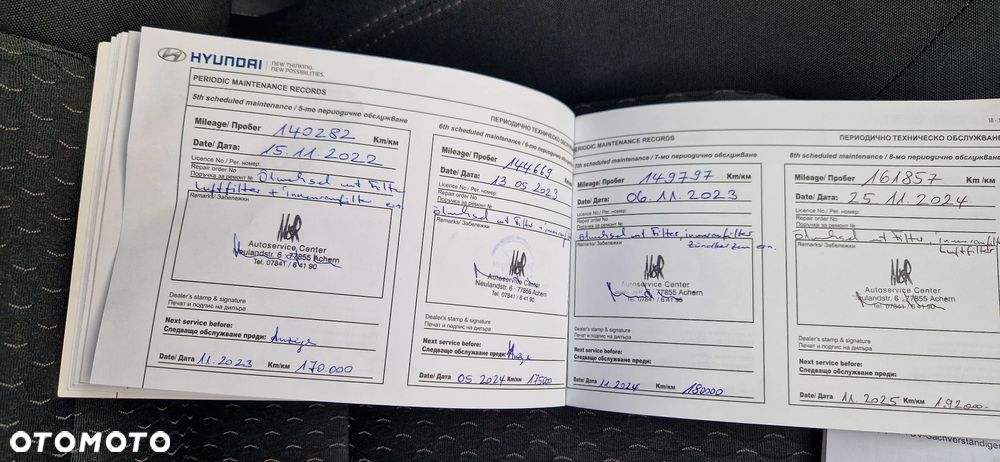 HYUNDAI
NEW THINKING.
NEW POSSIBILITIES.
PERIODIC MAINTENANCE RECORDS
5th scheduled maintenance / 5-мо периодично обслужване
Mileage/ Пробег 140282 Km/км
Date/ Дата: 15.11.2022
Licence No./ Рег. номер:
Repair order No
Поручка за ремонт № Ölwechsel mit Filter
Luftfilter + innenraumfilter
Remarks/ Забележки
Autoservice Center
Neulandstr. 6 · 77855 Achern
Tel. 07841 / 6 41 90
Dealer's stamp & signature
Печат и подпис на дилъра
Next service before:
Следващо обслужване преди: Anzeige
Date/ Дата 11.2023 Km/км 170.000
ПЕРИОДИЧНО ТЕХНИЧЕСКО
6th scheduled maintenance / 6-мо периодично
Mileage/ Пробег 144669
Date/ Дата: 13.05.2023
Licence No./ Рег. номер:
Repair order No
Поръчка за ремонт №
Ölwechsel mit Filter +
Remarks/ Забележки
Autoservice Center
Neulandstr. 6 · 77855 Achern
Tel. 07841 / 6 41 90
Dealer's stamp & signature
Печат и подпис на дилъра
Next service before:
Следващо обслужване преди:
Date/ Дата 05.2024 Km/км
PERIODIC MAINTENANCE RECORDS
7th scheduled maintenance / 7-мо периодично обслужване
Mileage/ Пробег 149797 Km/км
Date/ Дата: 06.11.2023
Licence No./ Рег. номер:
Repair order No
Поръчка за ремонт №
Ölwechsel mit Filter, innenraumfilter
Remarks/ Забележки
Zündkerzen
Autoservice Center
77855 Achern
Tel. 07841 /
Dealer's stamp & signature
Печат и подпис на дилъра
Next service before:
Следващо обслужване преди:
Date/ Дата 11.2024 Km/км 180000
ПЕРИОДИЧНО ТЕХНИЧЕСКО ОБСЛУЖВАНЕ
8th scheduled maintenance / 8-мо периодично обслужване
Mileage/ Пробег 161857 Km /км
Date/ Дата: 25 11.2024
Licence No./ Рег. номер:
Repair order No
Поръчка за ремонт №
Ölwechsel mit Filter,
Luftfilter
Remarks/ Забележки
Autoservice Center
Neulandstr. 6 · 77855 Achern
Tel. 07841 / 6 41 90
Dealer's stamp & signature
Печат и подпис на дилъра
Next service before:
Следващо обслужване преди:
Date/ Дата 11.2025 Km/км 192000-
OTOMOTO